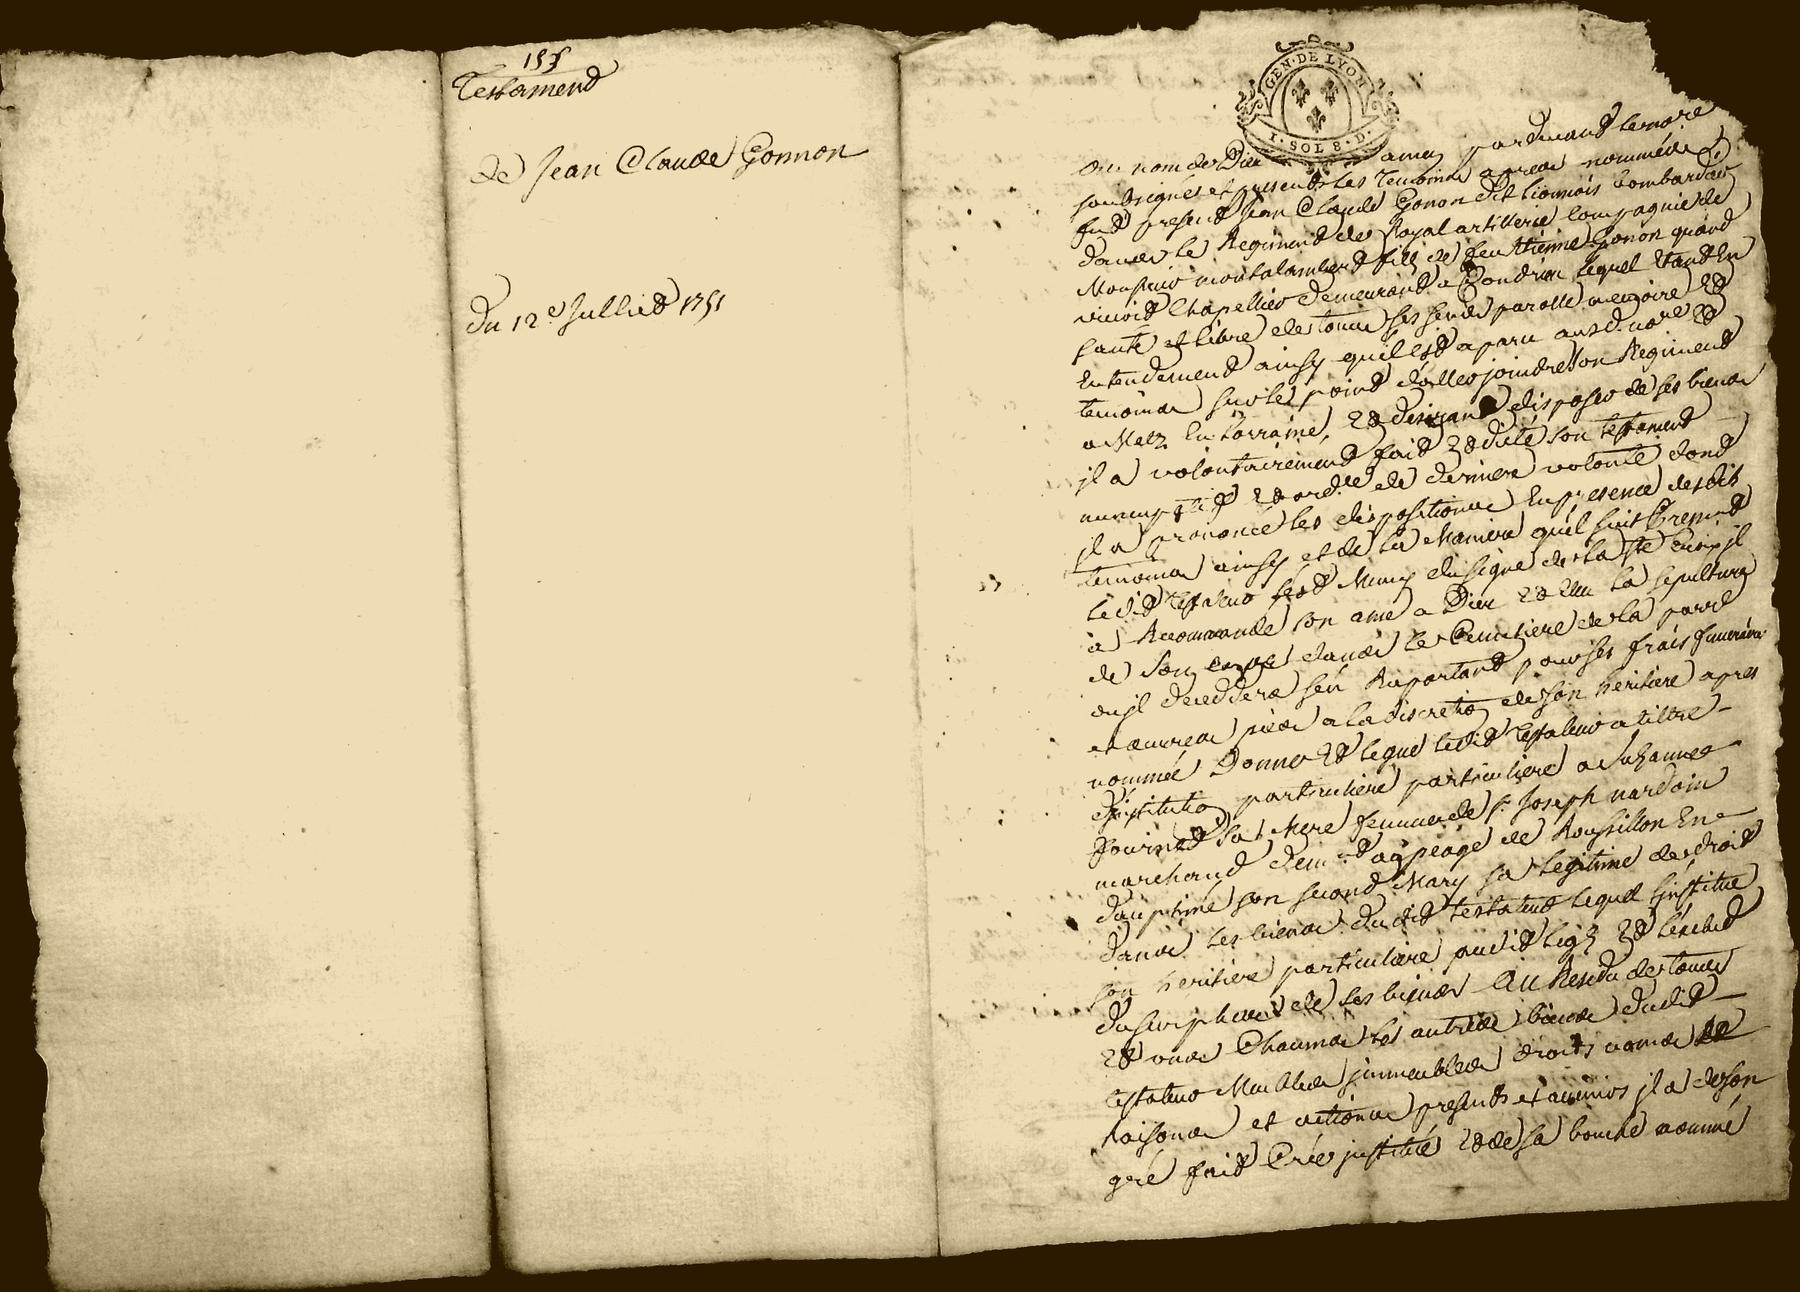 155
Testament
de Jean Claude Gonnon
du 12e Julliet 1751
GEN·DE LYON
I·SOL 8·D·
Au nom de Dieu amen pardevant le no.re
soubsigné et presents les temoins apres nommés
fut present Jean Claude Gonon dit lionnois bombardier
dans le Regiment de Royal artillerie Compagnie de
Monsieur montalambert fils de feu Etienne Gonon quand
vivoit Chapellier demeurant a Condrieu lequel Etant En
santé et libre de tous ses sens parolle memoire Et
Entendement ainsy quil est aparu ausd. no.re Et
temoins sur le point d'aller joindre son Regiment
a Metz En Lorraine, Et desirant disposer de ses biens
jl a volontairement fait Et dicté son testament
nuncupatif Et ord.re de derniere volonté dont
jl a prononcé les dispositions En presence desdits
temoins ainsy et de la Maniere quil suit
ledit testateur s'est Muny du signe de la Ste Croix jl
a Recomandé son ame a Dieu Et Elu la sepulture
de son corps dans le Cemetiere de la parr.e
ou jl deceddera s'en Raportant pour ses frais funeraires
et œuvres pies a la discretion de son heritiere apres
nommée Donne Et legue ledit testateur a tiltre
d'jnstitution particuliere particuliere a Suzanne
Fournet sa Mere femme de s.r Joseph nardoin
marchand dem.t au peage de Roussillon En
dauphiné son second Mary sa legitime de droit
dans les biens dudit testateur lequel l'jnstitue
son heritiere particuliere audit legs Et l'exclud
du surplus de ses biens Au Residu de tous
Et uns Chacuns les autres biens dudit
testateur Meubles jmmeubles droits noms
raisons et actions presents et avenirs jl a de son
gré fait Créé jnstitué Et de sa bouche nommé